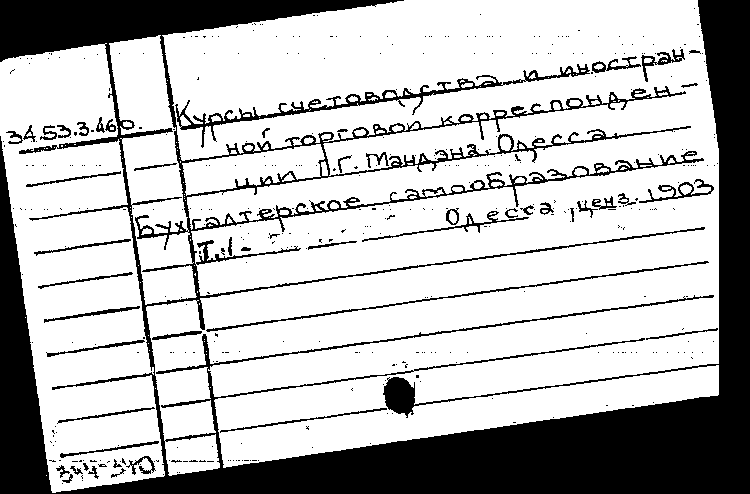 34.53.3.46о.
Курсы счетоводства и иностран-
ной торговой корреспонден-
ции П.Г. Мандана. Одесса.
Бухгалтерское самообразование
Одесса, ценз. 1903
Т.1-
344-340